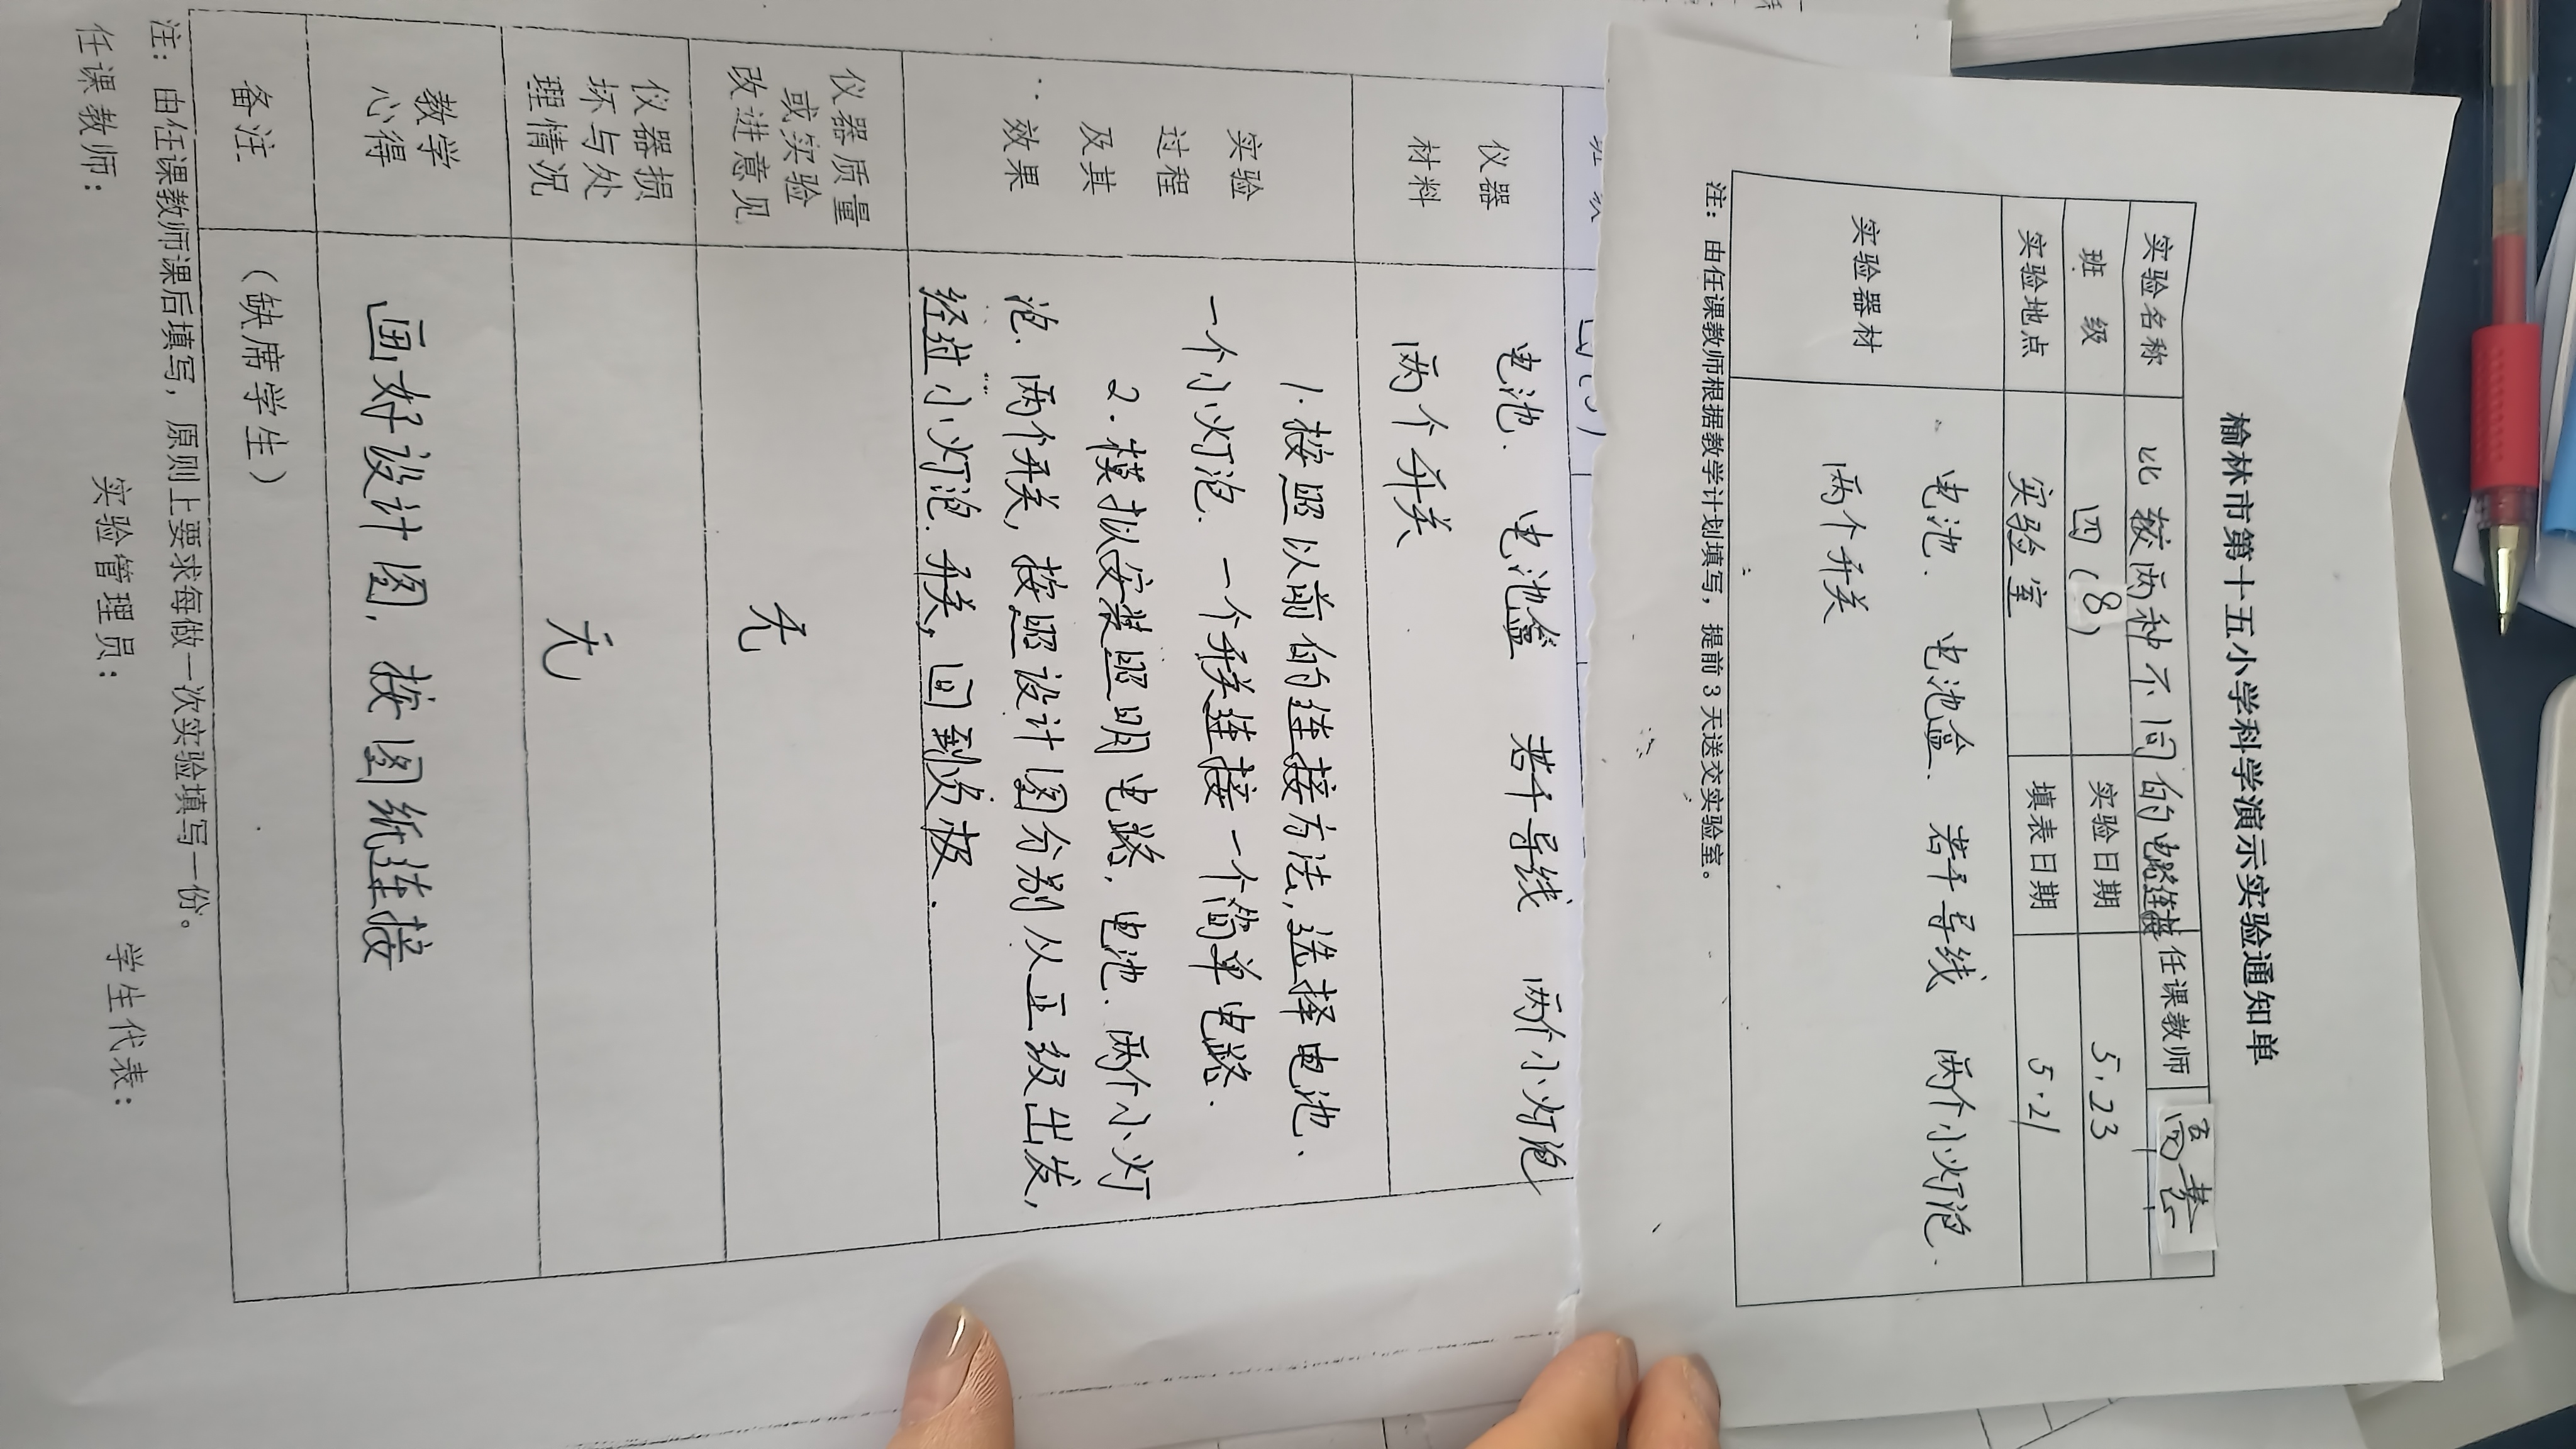 榆林市第十五小学科学演示实验通知单
实验名称 比较两种不同的电路连接 任课教师 高慧
班 级 四(8) 实验日期 5.23
实验地点 实验室 填表日期 5.21
实验器材 电池. 电池盒. 若干导线 两个小灯泡.
两个开关
注：由任课教师根据教学计划填写，提前3天送交实验室。
仪器材料 电池. 电池盒 若干导线 两个小灯泡
两个开关
实验过程及其效果
1.按照以前的连接方法,选择电池、
一个小灯泡. 一个开关连接一个简单电路.
2.模拟安装照明电路, 电池. 两个小灯
泡. 两个开关, 按照设计图分别从正级出发,
经过小灯泡. 开关, 回到负极.
仪器质量或实验改进意见 无
仪器损坏与处理情况 无
教学心得 画好设计图, 按图纸连接
备注 （缺席学生）
注：由任课教师课后填写，原则上要求每做一次实验填写一份。
任课教师： 实验管理员： 学生代表：